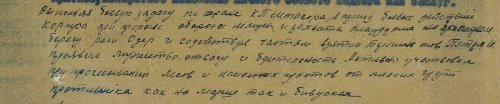 Выполняя боевую задачу по охране КП штакора в период боевых действий
корпуса при прорыве обороны немцев и захвата плацдарма на западном
берегу реки Одер и содействуя частям взятию
проявил мужество, отвагу и бдительность. Активно участвовал
при прочесывании лесов и населенных пунктов от мелких групп
противника как на марше так и бивуаках